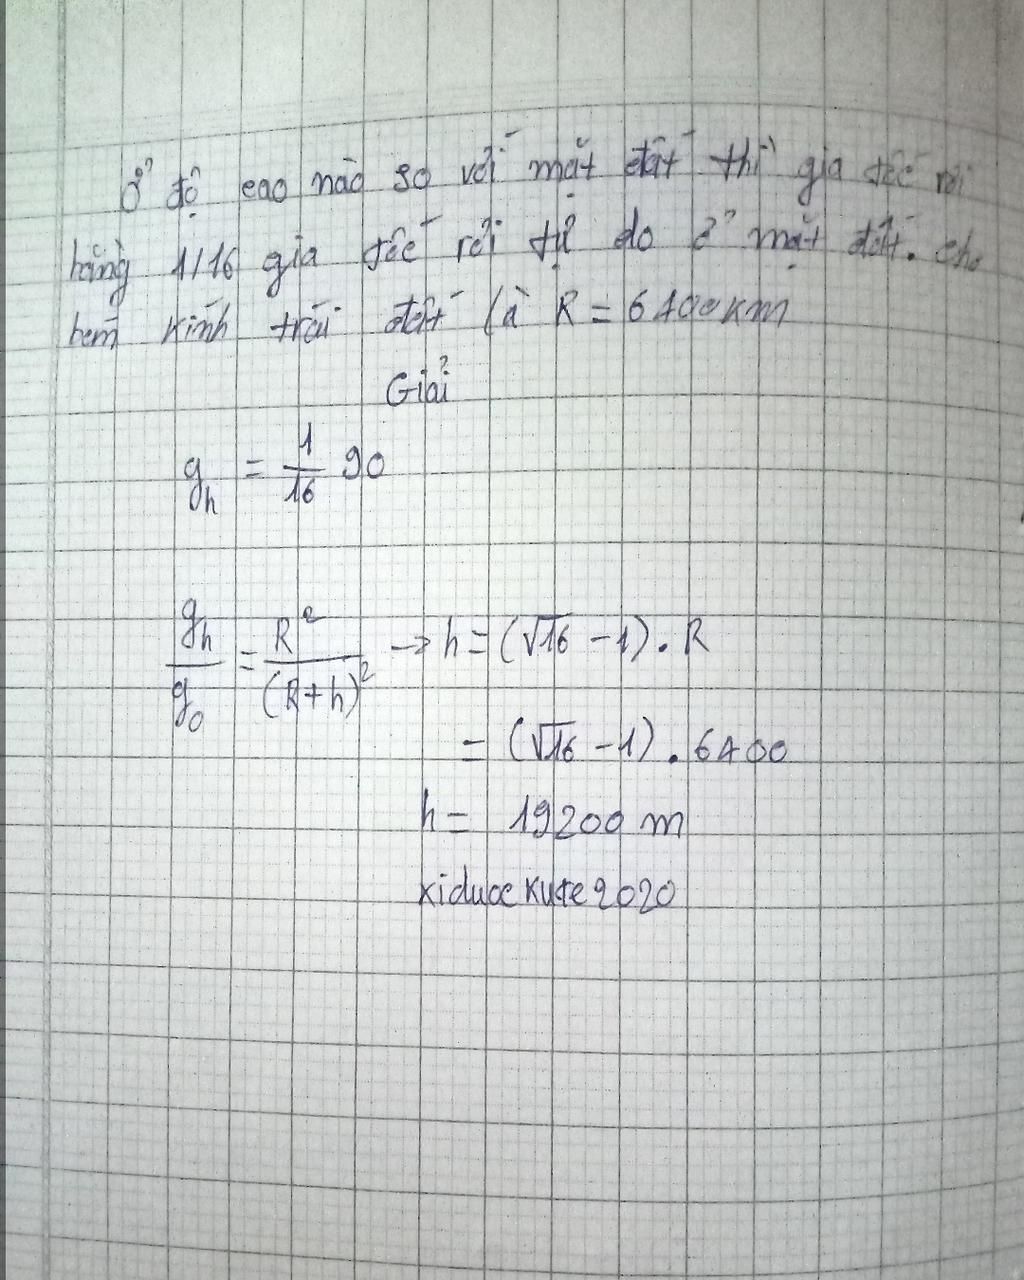 Ở độ cao nào so với mặt đất thì gia tốc rơi
bằng 1/16 gia tốc rơi tự do ở mặt đất. cho
bán kính trái đất là R = 6400km
Giải
g_h = 1/16 g0
g_h/g_0 = R²/(R+h)² → h = (√16 - 1). R
= (√16 - 1). 6400
h = 19200 m
xiduoc kute2020